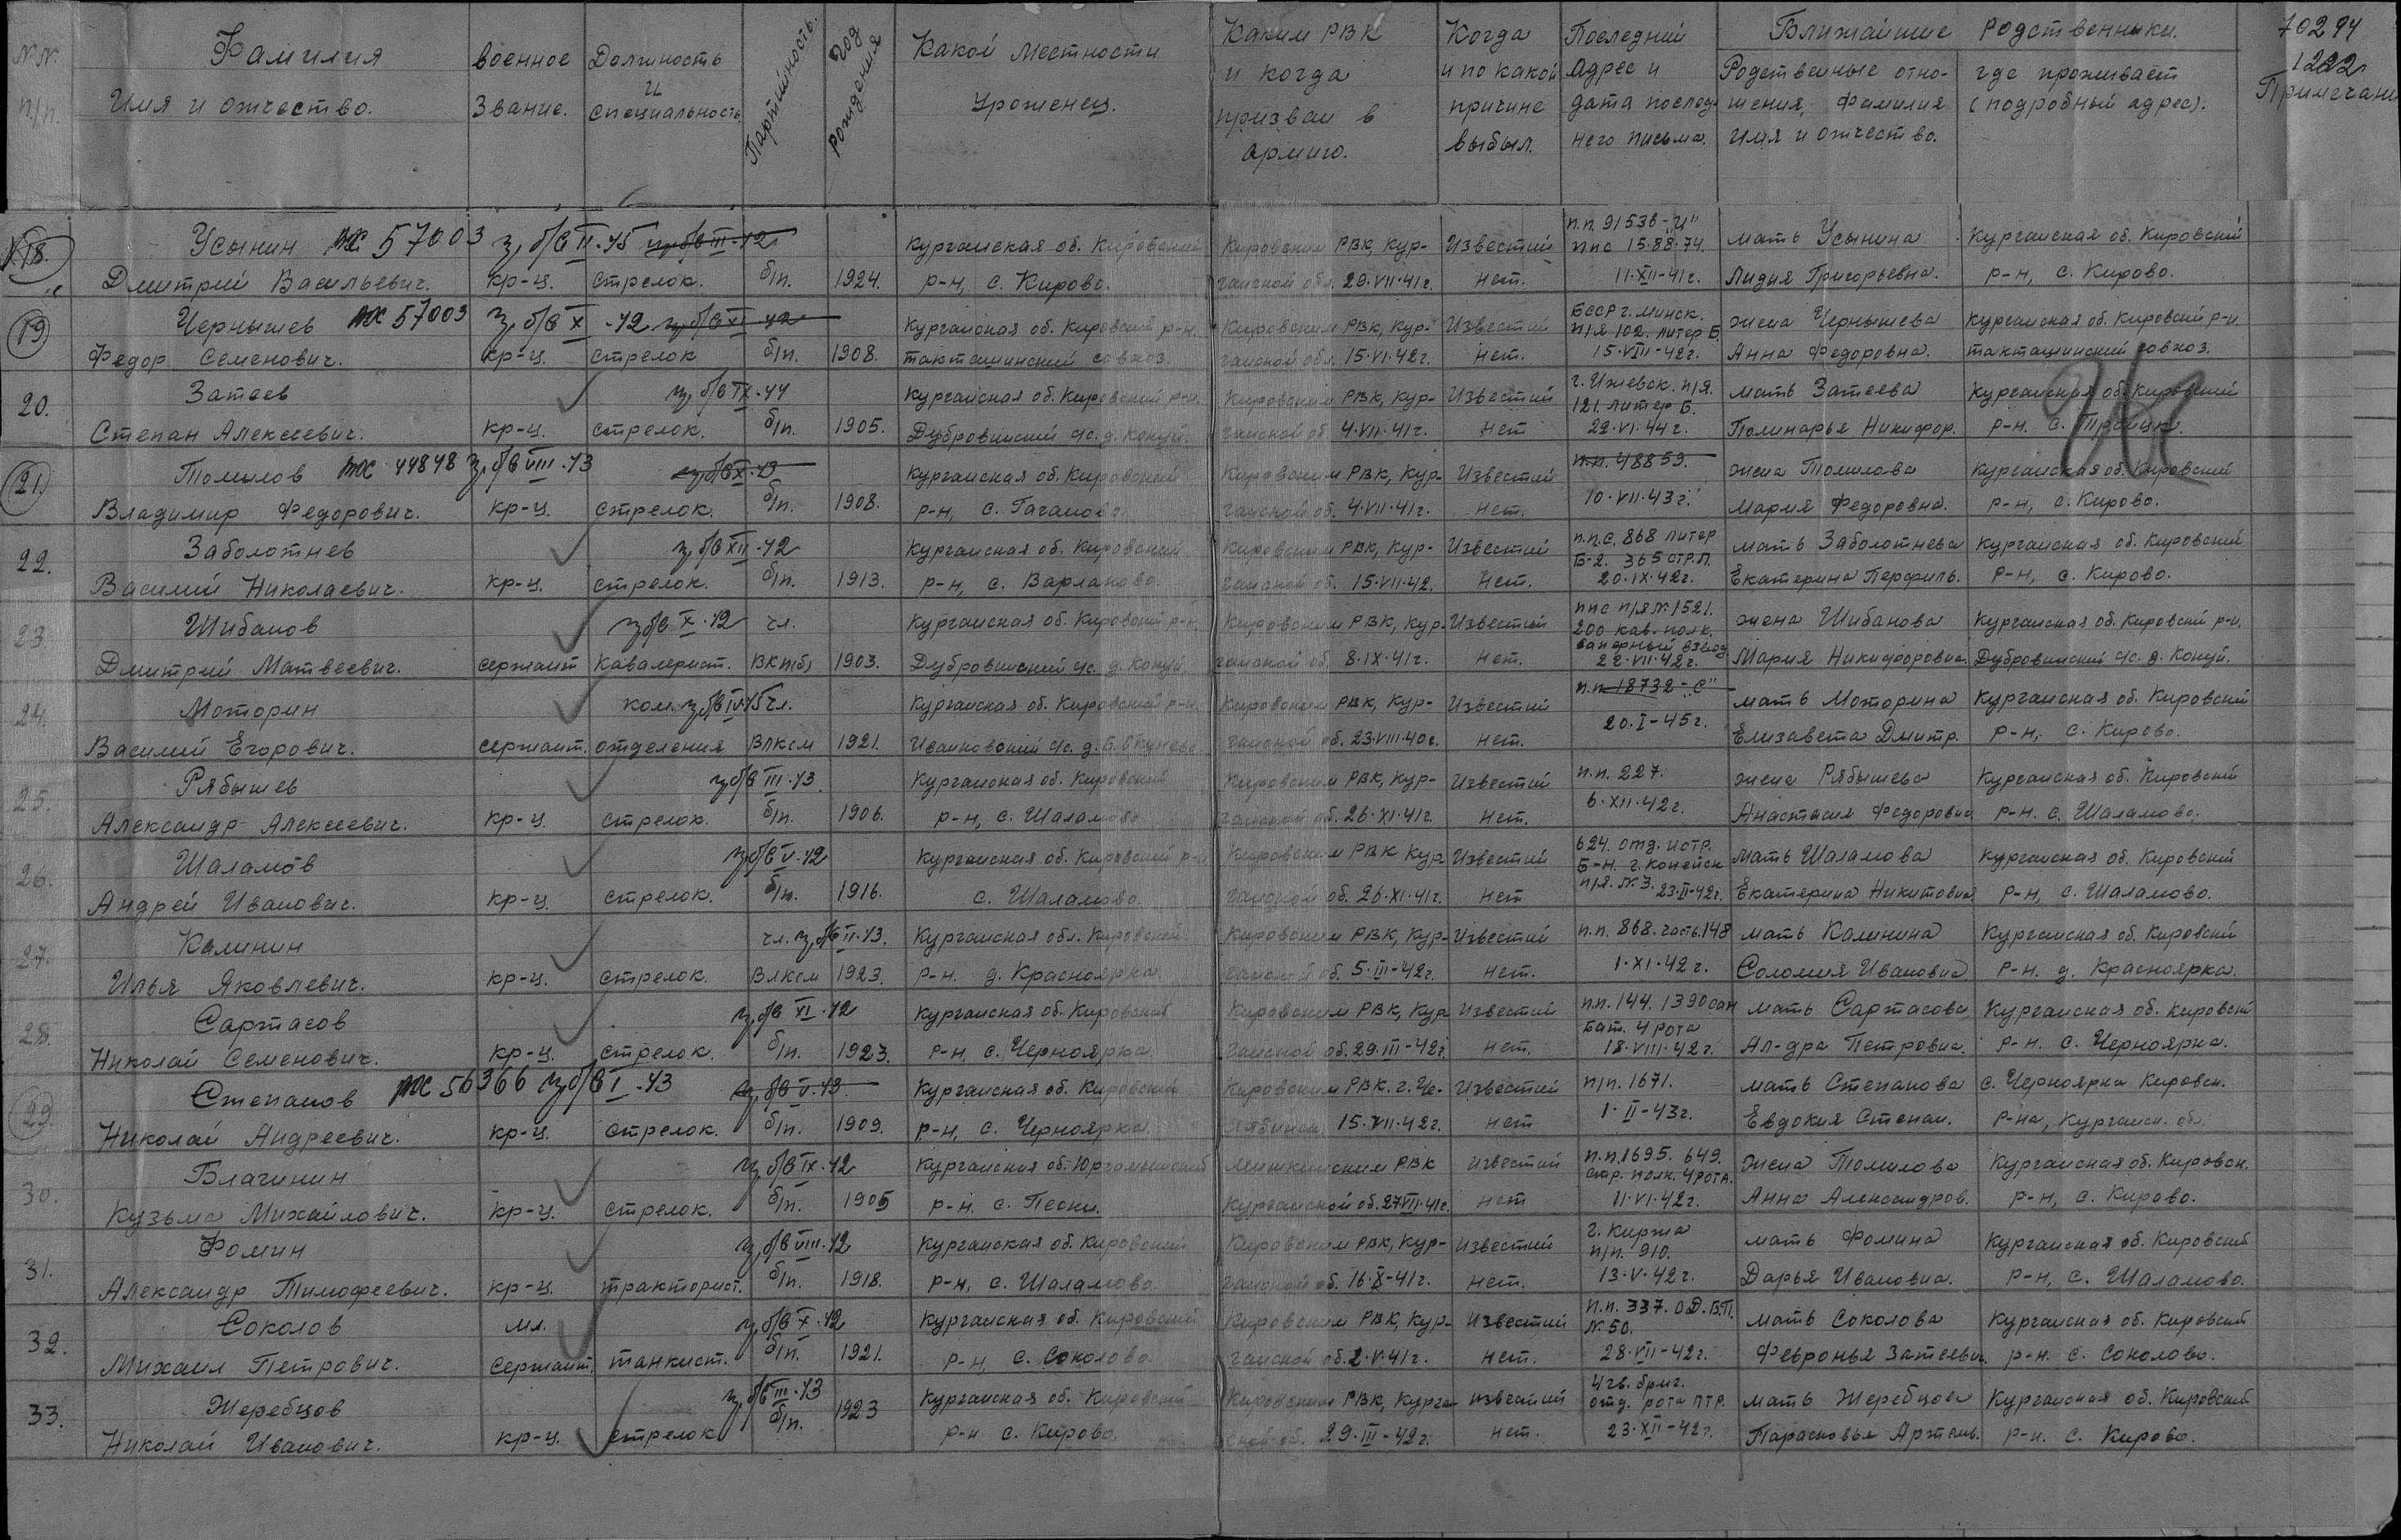 №№ п/п. | Фамилия Имя и отчество. | военное звание. | Должность и специальность. | Партийность. | Год рождения | Какой местности уроженец. | Каким РВК и когда призван в армию. | Когда и по какой причине выбыл. | Последний адрес и дата последнего письма. | Ближайшие родственники. | Родственные отношения, фамилия имя и отчество. | где проживает (подробный адрес). | Примечани
70294
1222
18. Усынин 57003 б/в II-45 б/в III-42 Курганская об. Кировский Кировским РВК, Кур- Известий п.п. 91536-"И" ппс 15.88.74. мать Усынина Курганская об. Кировский
Дмитрий Васильевич. кр-ц. стрелок. б/п. 1924. р-н, с. Кирово. ганской обл. 29.VII.41г. нет. 11.XII-41г. Лидия Григорьевна. р-н, с. Кирово.
19 Чернышев 57003 б/в X-42 б/в XI-42 Курганская об. Кировский р-н. Кировским РВК, Кур- Известий БССР г. Минск. п/я 102. литер Б. жена Чернышева Курганская об. Кировский р-н.
Федор Семенович. кр-ц. стрелок б/п. 1908. такташинский совхоз. ганской обл. 15.VI.42г. нет. 15.VIII-42г. Анна Федоровна. такташинский совхоз.
20. Затеев б/в IX-44 Курганская об. Кировский р-н. Кировским РВК, Кур- Известий г. Ижевск. п/я. 121. литер Б. мать Затеева Курганская об. Кировский
Степан Алексеевич. кр-ц. стрелок. б/п. 1905. Дубровинский с/с. д. Конуй. ганской об. 4.VII.41г. нет 22.VI.44г. Полинарья Никифор. р-н. с. Троицк.
21. Томилов 44848 б/в VIII-43 б/в X-43 Курганская об. Кировский Кировским РВК, Кур- Известий п.п. 48859. жена Томилова Курганская об. Кировский
Владимир Федорович. кр-ц. стрелок. б/п. 1908. р-н, с. Гаганово. ганской об. 4.VII.41г. нет. 10.VII.43г. Мария Федоровна. р-н, с. Кирово.
22. Заболотнев б/в XII-42 Курганская об. Кировский Кировским РВК, Кур- Известий п.п.с. 868 литер Б-2. 365 стр.п. мать Заболотнева Курганская об. Кировский
Василий Николаевич. кр-ц. стрелок. б/п. 1913. р-н, с. Варлаково. ганской об. 15.VII.42. нет. 20.IX.42г. Екатерина Перфиль. р-н, с. Кирово.
23. Шибанов б/в X-42 чл. Курганская об. Кировский р-н. Кировским РВК, Кур- Известий ппс п/я №1521. 200 кав. полк. саперный взвод жена Шибанова Курганская об. Кировский р-н.
Дмитрий Матвеевич. сержант кавалерист. ВКП(б) 1903. Дубровинский с/с. д. Конуй ганской об. 8.IX.41г. нет. 22.VII.42г. Мария Никифоровна. Дубровинский с/с. д. Конуй.
24. Моторин ком. б/в IV-45 чл. Курганская об. Кировский р-н. Кировским РВК, Кур- Известий п.п. 18732-"С" мать Моторина Курганская об. Кировский
Василий Егорович. сержант. отделения ВЛКСМ 1921. Ивановский с/с. д. Б. Окунево ганской об. 23.VIII.40г. нет. 20.I-45г. Елизавета Дмитр. р-н, с. Кирово.
25. Рябышев б/в III-43. Курганская об. Кировский Кировским РВК, Кур- Известий п.п. 227. жена Рябышева Курганская об. Кировский
Александр Алексеевич. кр-ц. стрелок. б/п. 1906. р-н, с. Шаламово ганской об. 26.XI.41г. нет. 6.XII.42г. Анастасия Федоровна р-н. с. Шаламово.
26. Шаламов б/в V-42 Курганская об. Кировский р-н Кировским РВК Кур- Известий 624. отд. истр. Б-н. г. Копейск мать Шаламова Курганская об. Кировский
Андрей Иванович. кр-ц. стрелок. б/п. 1916. с. Шаламово. ганской об. 26.XI.41г. нет п/я. №3. 23.II-42г. Екатерина Никитовна р-н, с. Шаламово.
27. Калинин чл. б/в II-43. Курганская обл. Кировский Кировским РВК, Кур- Известий п.п. 868. часть. 148 мать Калинина Курганская об. Кировский
Илья Яковлевич. кр-ц. стрелок. ВЛКСМ 1923. р-н. д. Красноярка ганской об. 5.III-42г. нет. 1.XI.42г. Соломия Ивановна р-н. д. Красноярка.
28. Сартасов б/в XI-42 Курганская об. Кировский Кировским РВК, Кур- Известий п.п. 144. 1390 сап бат. 4 рота мать Сартасова Курганская об. Кировский
Николай Семенович. кр-ц. стрелок. б/п. 1923. р-н, с. Черноярка ганской об. 29.III-42г. нет. 18.VIII.42г. Ал-дра Петровна. р-н. с. Черноярка.
29. Степанов 56366 б/в I-43 б/в V-43. Курганская об. Кировский Кировским РВК. г. Че- Известий п/п. 1671. мать Степанова с. Черноярка Кировск.
Николай Андреевич. кр-ц. стрелок. б/п. 1909. р-н, с. Черноярка лябинск 15.VII.42г. нет 1.II-43г. Евдокия Степан. р-на, Курганск. обл.
30. Благинин б/в IX-42 Курганская об. Юргамышский Мишкинским РВК Известий п.п. 1695. 649. стр. полк. 4 рота. жена Томилова Курганская об. Кировск.
Кузьма Михайлович. кр-ц. стрелок. б/п. 1905 р-н. с. Пески. Курганской об. 27VII.41г. нет 11.VI.42г. Анна Александров. р-н, с. Кирово.
31. Фомин б/в VIII-42 Курганская об. Кировский Кировским РВК, Кур- Известий г. Киржа п/п. 910. мать Фомина Курганская об. Кировский
Александр Тимофеевич. кр-ц. тракторист. б/п. 1918. р-н, с. Шаламово. ганской об. 16.X-41г. нет. 13.V.42г. Дарья Ивановна. р-н, с. Шаламово.
32. Соколов мл. б/в X-42 Курганская об. Кировский Кировским РВК, Кур- Известий п.п. 337. О.Д.В.П. №50. мать Соколова Курганская об. Кировский
Михаил Петрович. сержант, танкист. б/п. 1921. р-н, с. Соколово. ганской об. 2.V.41г. нет. 28.VII-42г. Февронья Затеевн. р-н. с. Соколово.
33. Жеребцов б/в III-43 Курганская об. Кировский Кировским РВК, Курган- известий 4 гв. бриг. отд. рота ПТР. мать Жеребцова Курганская об. Кировский
Николай Иванович. кр-ц. стрелок б/п. 1923 р-н с. Кирово. ской об. 29.III-42г. нет. 23.XII-42г. Парасковья Артемь. р-н. с. Кирово.